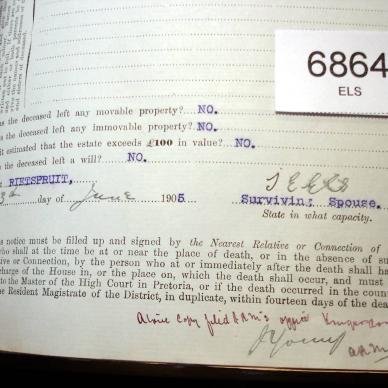 6864
ELS
as the deceased left any movable property?.....NO.
s the deceased left any immovable property?....NO.
it estimated that the estate exceeds £100 in value?...NO.
the deceased left a will?....... NO.
RIETSPRUIT,
day of June 1905
Surviving Spouse.
State in what capacity.
is notice must be filled up and signed by the Nearest Relative or Connection of
who shall at the time be at or near the place of death, or in the absence of su
ive or Connection, by the person who at or immediately after the death shall ha
charge of the House in, or the place on, which the death shall occur, and must
to the Master of the High Court in Pretoria, or if the death occurred in the coun
he Resident Magistrate of the District, in duplicate, within fourteen days of the dea
Above Copy filed A.R.M's office Krugersdor